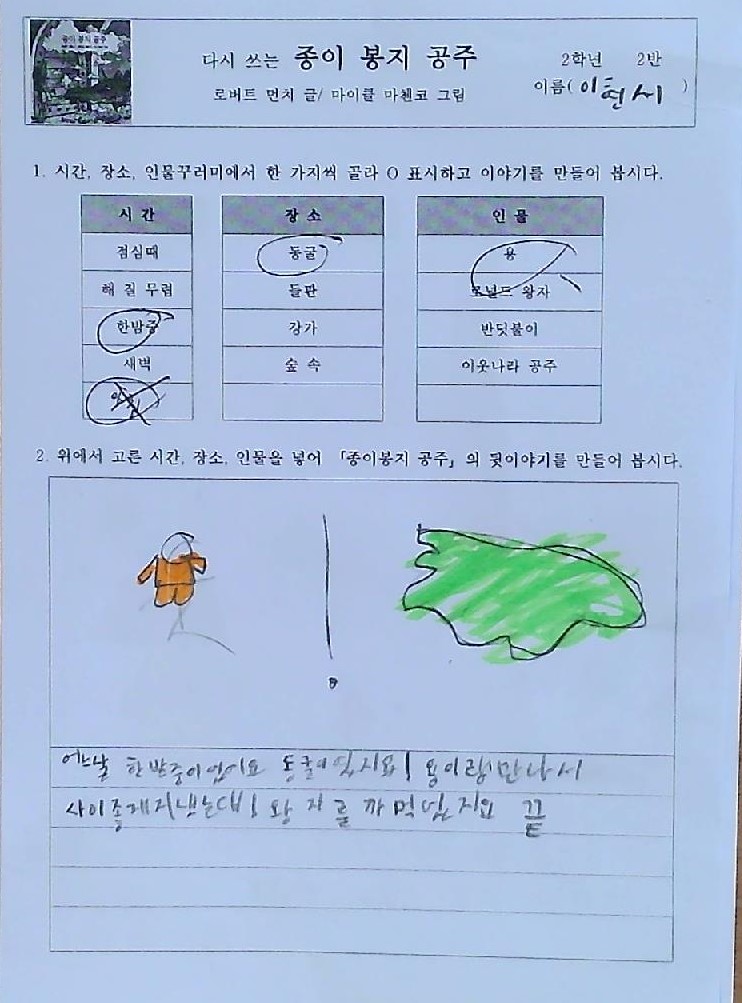 종이 봉지 공주
다시 쓰는 종이 봉지 공주
2학년 2반
로버트 먼치 글/ 마이클 마첸코 그림
이름( 이현서 )
1. 시간, 장소, 인물꾸러미에서 한 가지씩 골라 O 표시하고 이야기를 만들어 봅시다.
시 간 장 소 인 물
점심때 동굴 용
해 질 무렵 들판 로널드 왕자
한밤중 강가 반딧불이
새벽 숲 속 이웃나라 공주
2. 위에서 고른 시간, 장소, 인물을 넣어 「종이봉지 공주」의 뒷이야기를 만들어 봅시다.
한밤중이었어요 동굴이 있지요! 용이랑 만나서
사이좋게 지냈는데! 왕자를 까먹었지요 끝